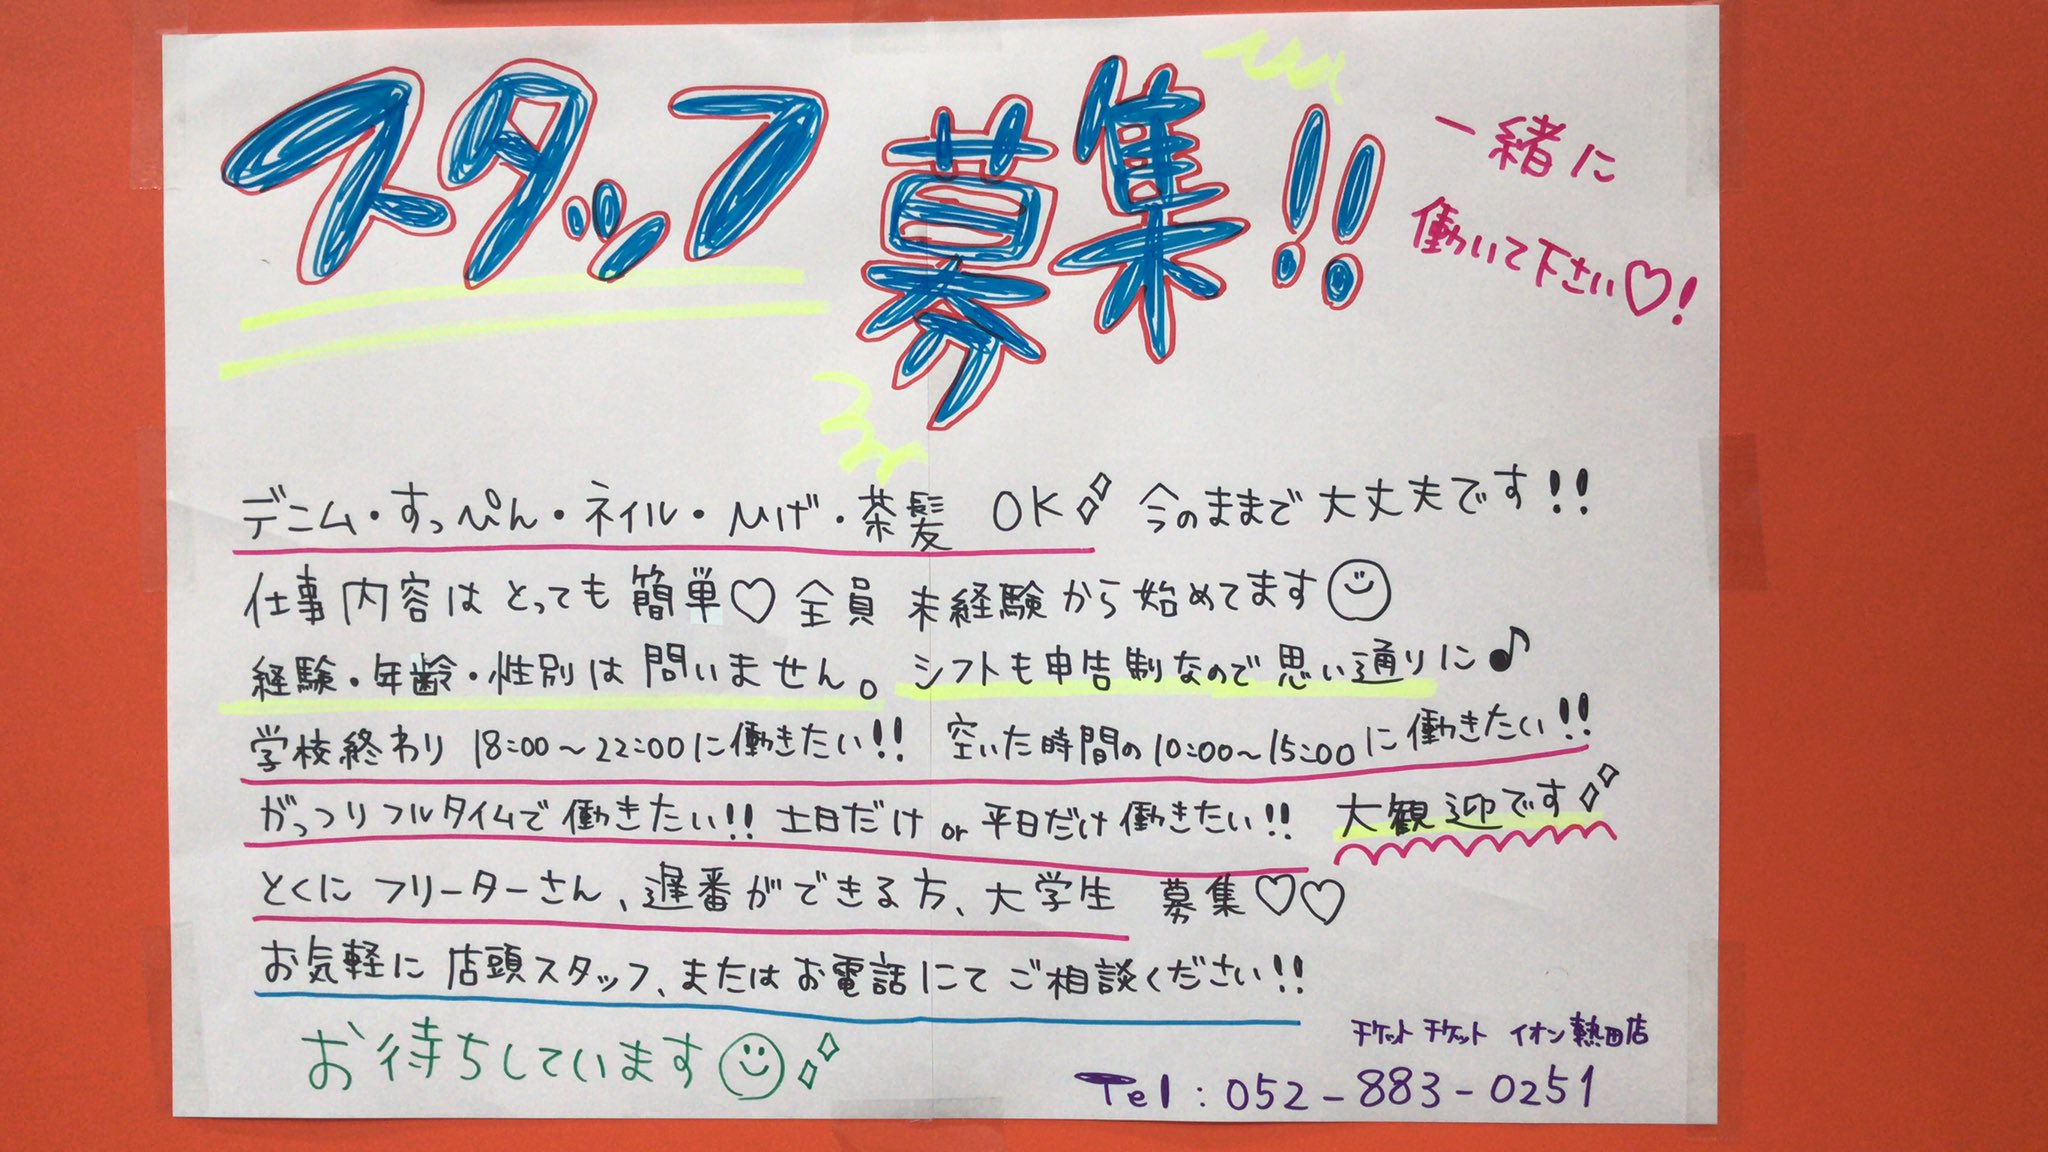 スタッフ募集!!
一緒に
働いて下さい♡!
デニム・すっぴん・ネイル・ひげ・茶髪 OK 今のままで大丈夫です!!
仕事内容はとっても簡単♡全員 未経験から始めてます
経験・年齢・性別は問いません。 シフトも申告制なので思い通りに♪
学校終わり 18:00〜22:00に働きたい!! 空いた時間の10:00〜15:00に働きたい!!
がっつりフルタイムで働きたい!! 土日だけ or 平日だけ働きたい!! 大観迎です
とくにフリーターさん、遅番ができる方、大学生 募集♡♡
お気軽に店頭スタッフ、またはお電話にてご相談ください!!
お待ちしています
チケットチケット イオン熱田店
Tel:052-883-0251